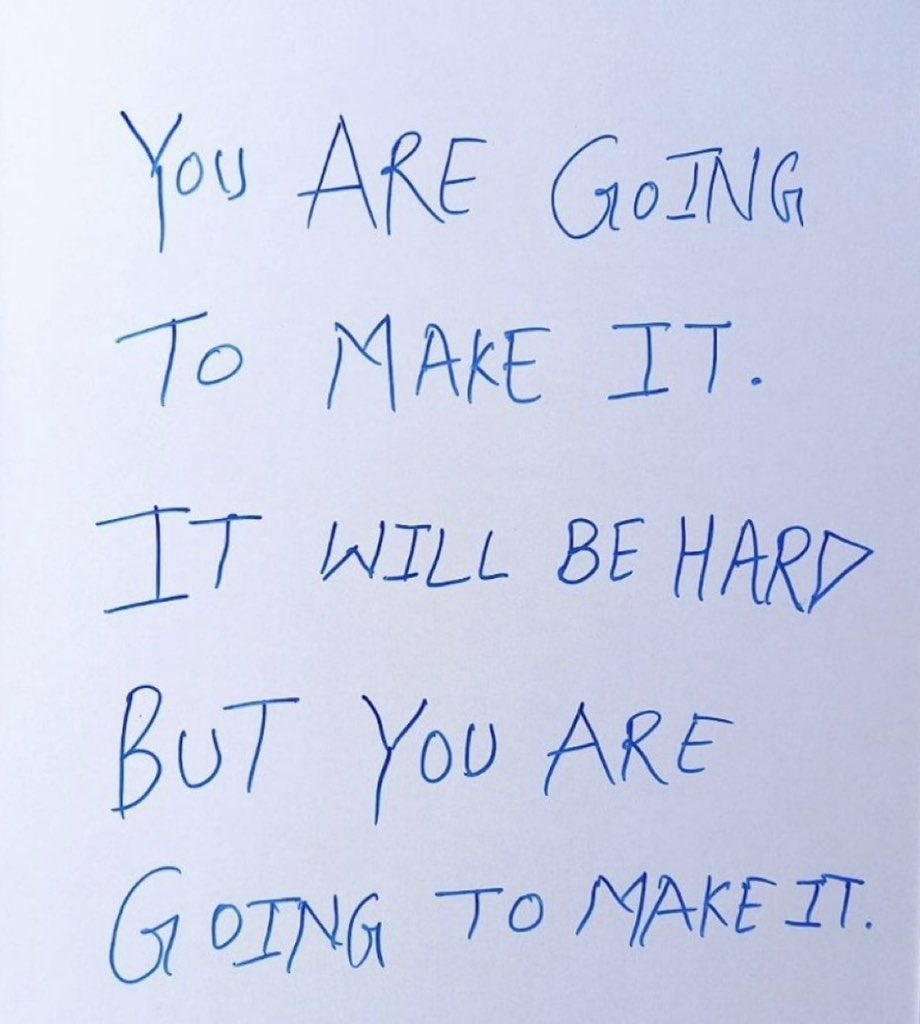 YOU ARE GOING
TO MAKE IT.
IT WILL BE HARD
BUT YOU ARE
GOING TO MAKE IT.